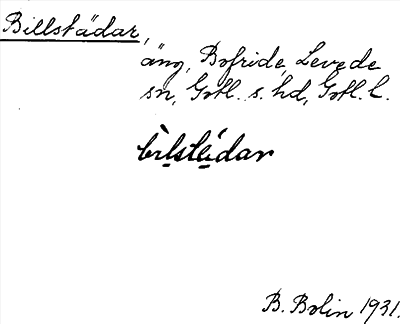 Billstädar,
äng, Bofride, Levede
sn, Gotl. s. hd, Gotl. l.
bìlstädar
B. Bolin 1931.